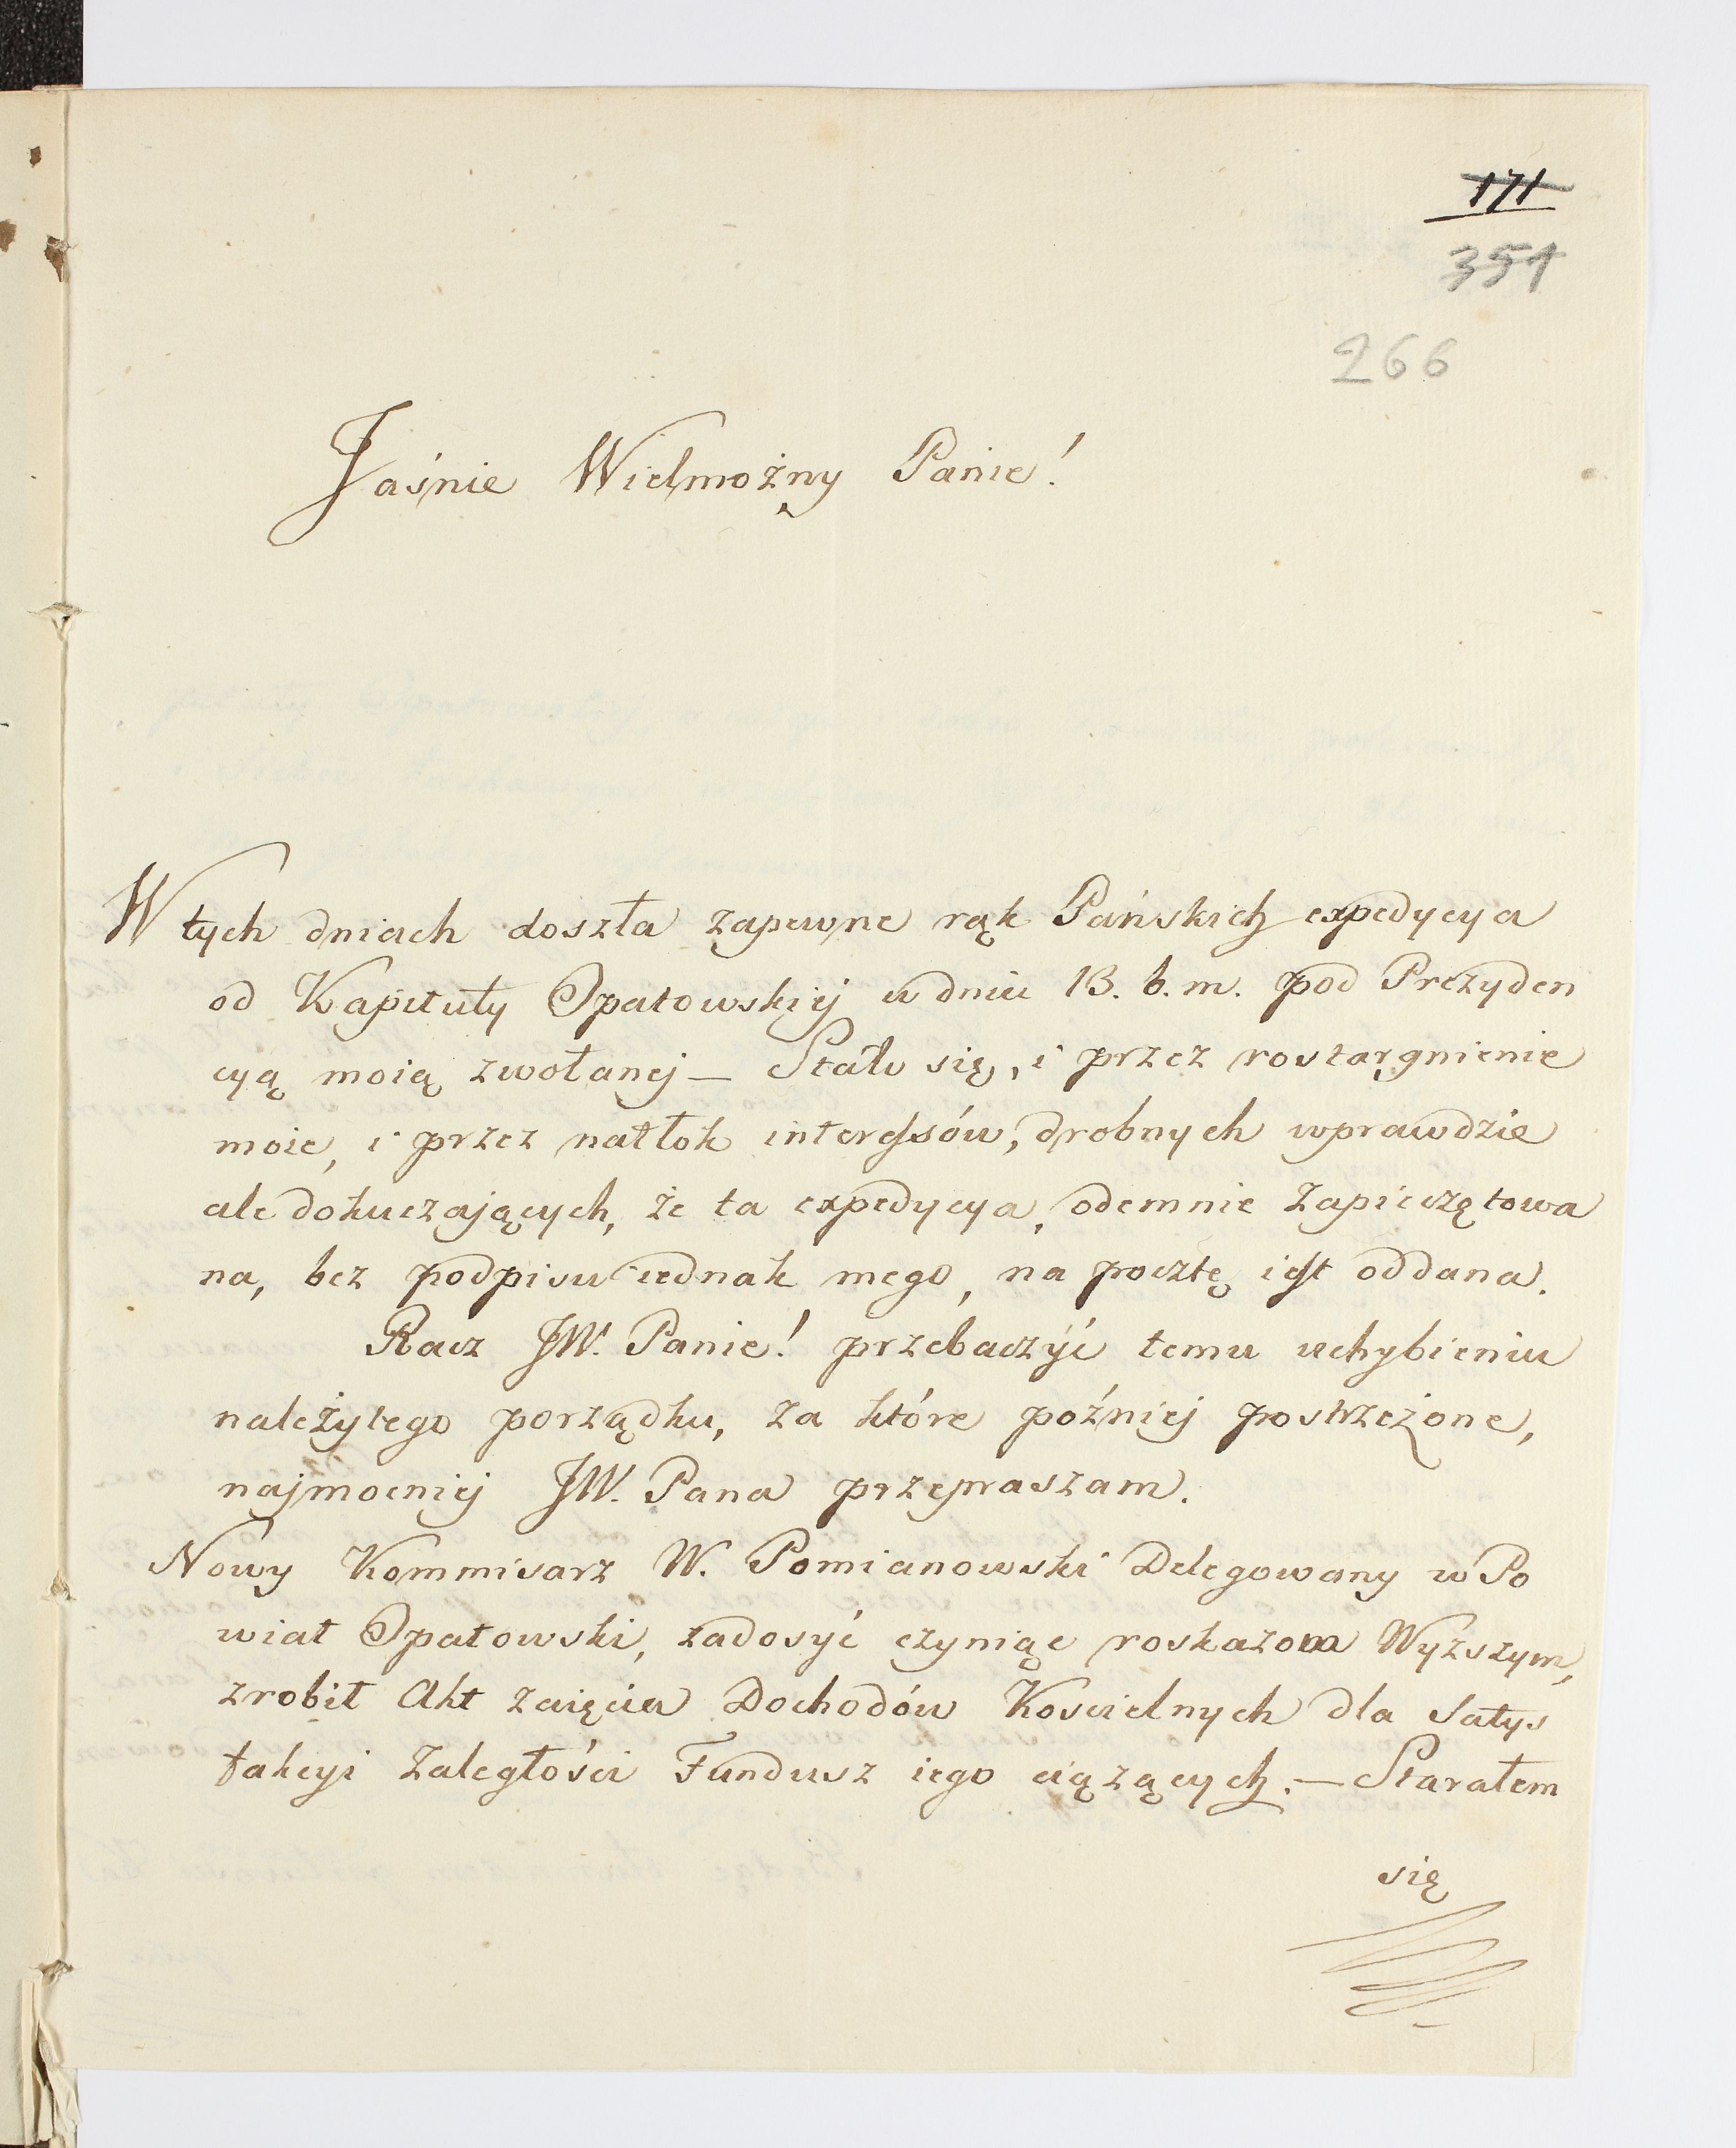 171
351
266
Jaśnie Wielmożny Panie!
W tych dniach doszła zapewne rąk Pańskich expedycya
od Kapituły Opatowskiej w dniu 13. b. m. pod Prezyden
cyą moią zwołanej — Stało się, i przez rostargnienie
moie, i przez natłok interessów, drobnych wprawdzie
ale dokuczających, że ta expedycya, odemnie zapieczętowa
na, bez podpisu iednak mego, na pocztę iest oddana.
Racz JW. Panie! przebaczyć temu uchybieniu
należytego porządku, za które poźniej postrzeżone,
najmocniej JW. Pana przepraszam.
Nowy Kommisarz W. Pomianowski Delegowany w Po
wiat Opatowski, zadosyć czyniąc roskazom Wyższym,
zrobił Akt zaięcia Dochodów Kościelnych dla Satys
fakcyi Zaległości Fundusz iego ciążących. — Starałem
się